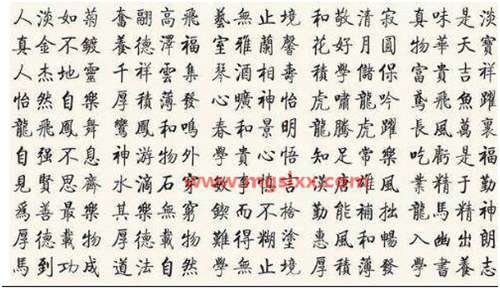 人淡如菊 奮翮高飛 藝無止境 和敬清寂 真味是淡
真金不鍍 養德澤福 室雅蘭馨 花好月圓 物華天寶
人杰地靈 千祥雲集 琴酒相壽 學儲 富貴吉祥
怡然自樂 厚積薄發 心曠神怡 虎嘯龍吟 鳶飛魚躍
龍飛鳳舞 鸞鳳和鳴 春和景明 龍騰虎躍 長風萬裏
自强不息 神游物外 學貴心悟 知足常樂 吃虧是福
見賢思齊 水滴石穿 風 勤
爲善最樂 其樂無窮 鍥而不捨 勤能補拙 龍馬精神
厚德載物 厚德載物 難得糊塗 惠風和暢 入幽出朗
馬到功成 道法自然 學無止境 厚積薄發 學書養志